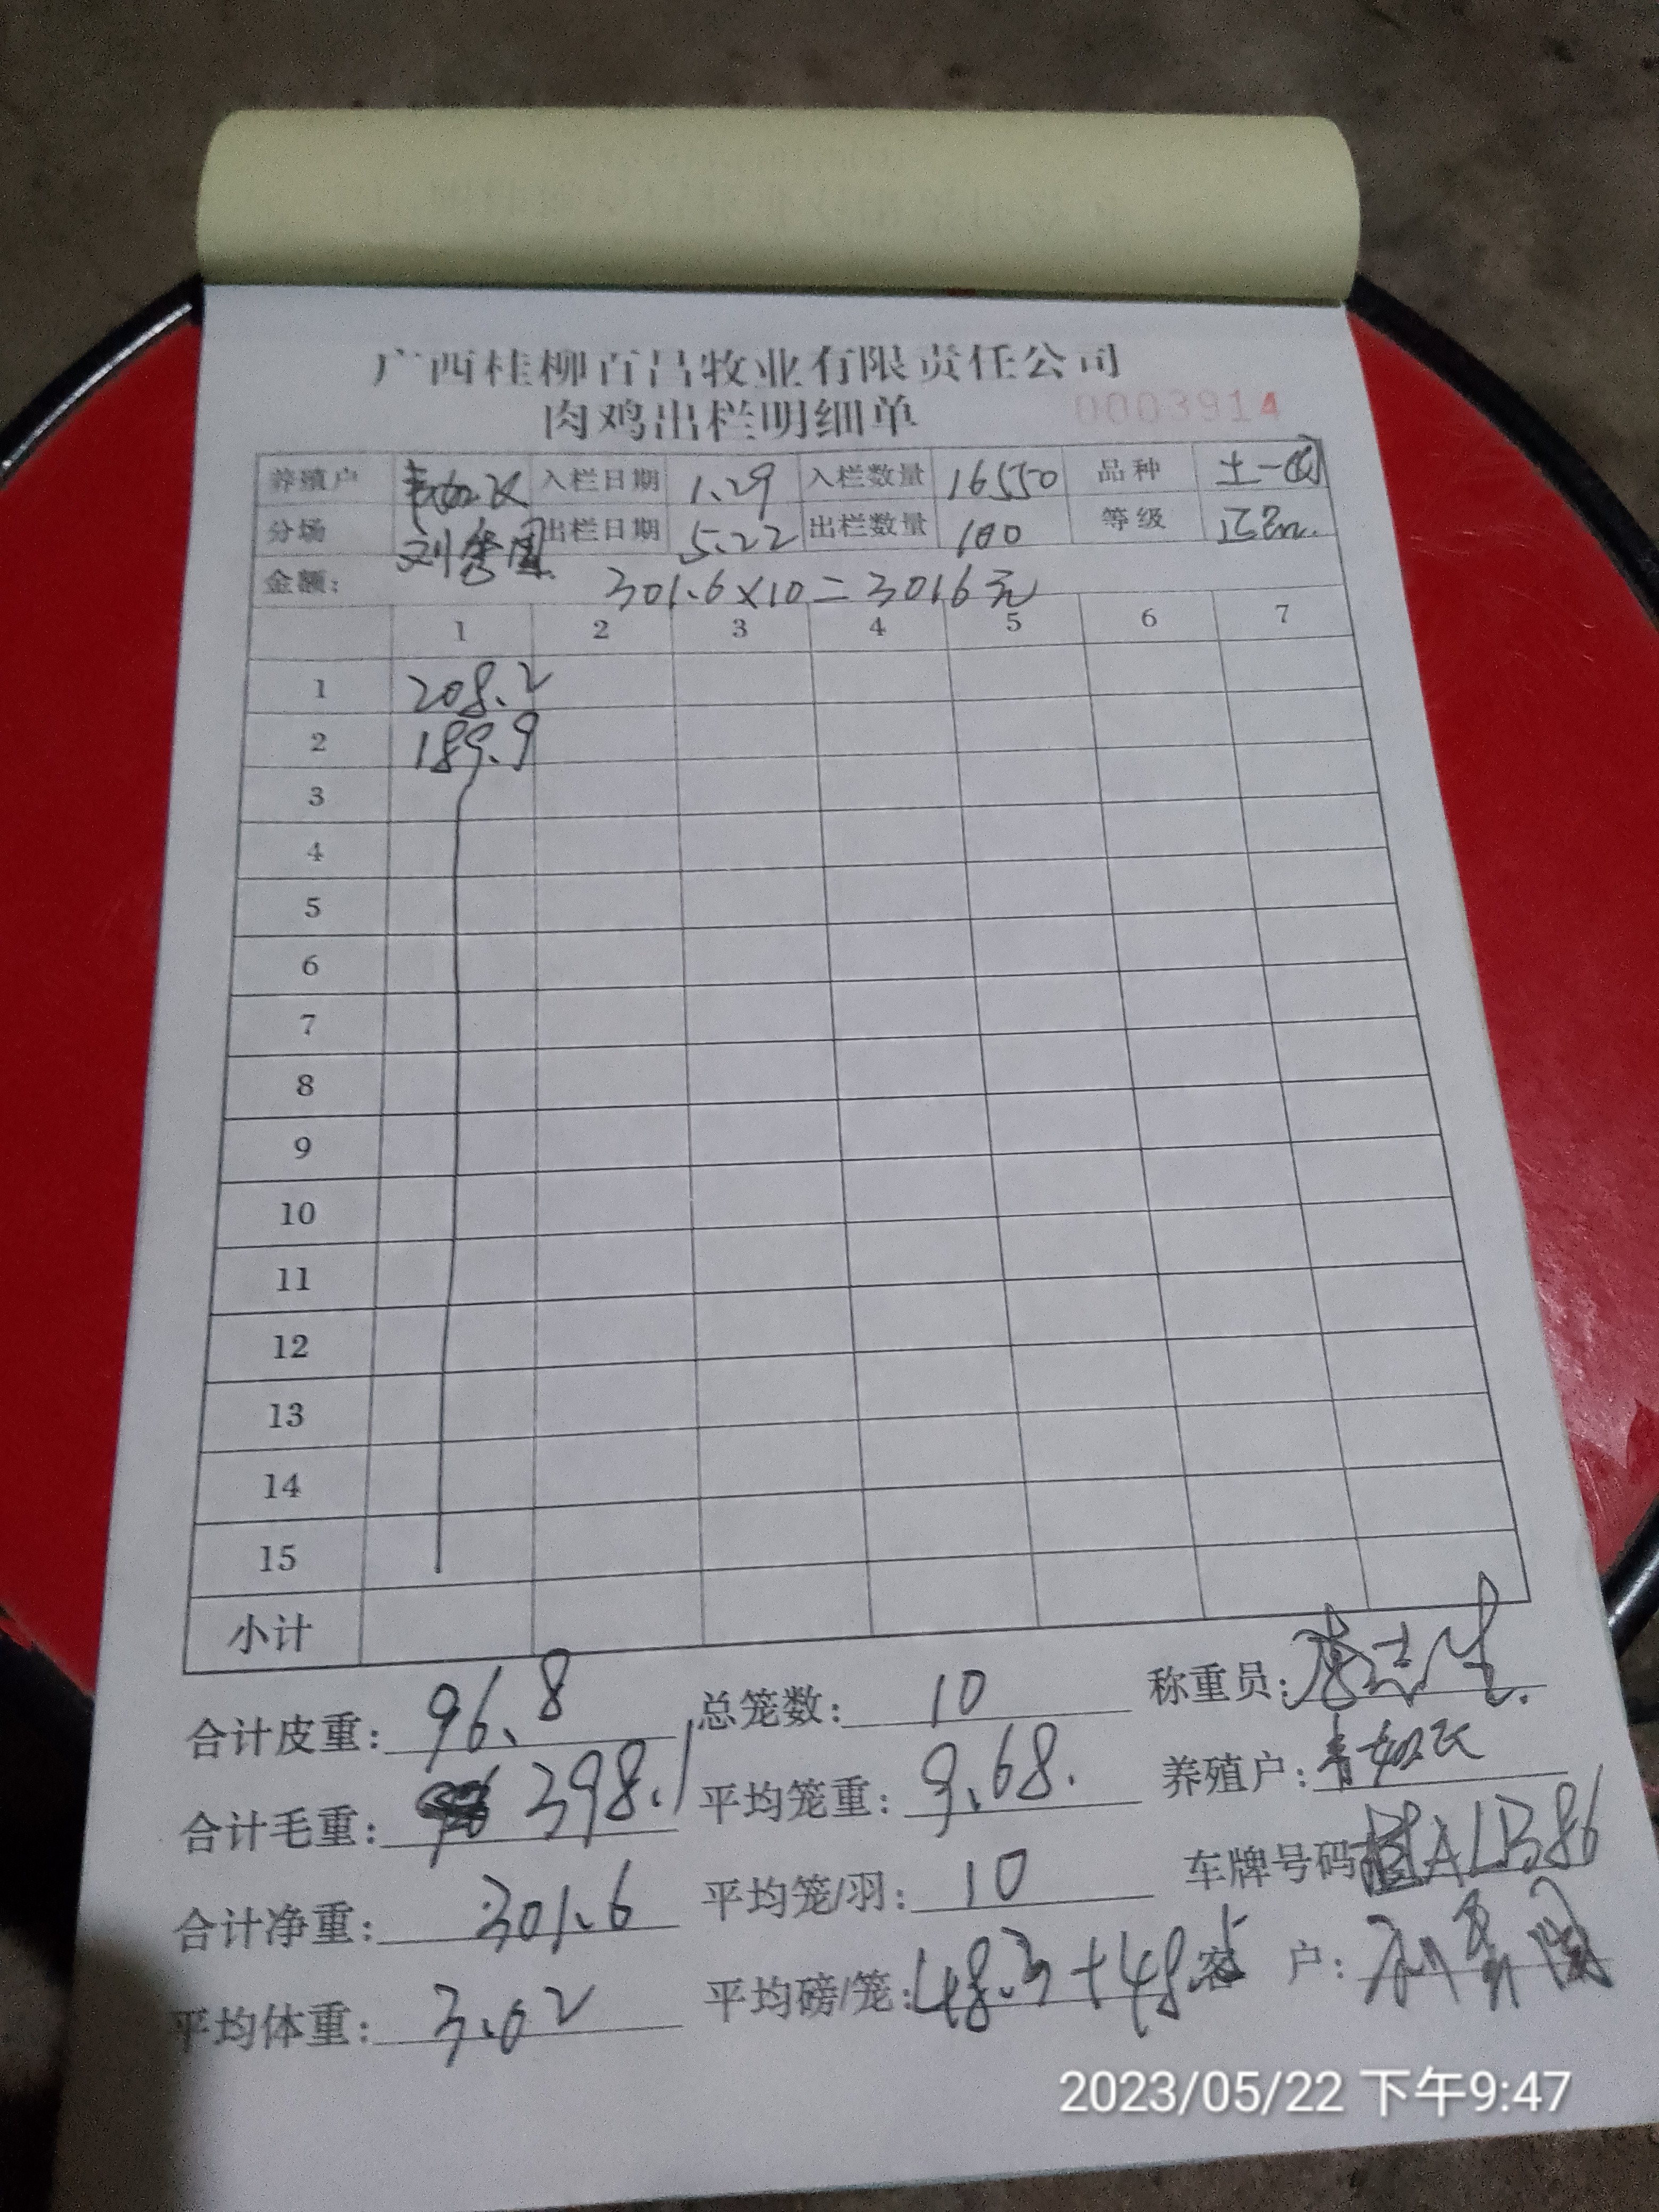 广西桂柳百昌牧业有限责任公司
肉鸡出栏明细单 0003914
养殖户 入栏日期 1.29 入栏数量 16550 品种 土一
分场 刘 出栏日期 5.22 出栏数量 100 等级 正品
金额: 301.6×10=3016元
1 2 3 4 5 6 7
1 208.2
2 189.9
3
4
5
6
7
8
9
10
11
12
13
14
15
小计
合计皮重: 96.8 总笼数: 10 称重员:
合计毛重: 398.1 平均笼重: 9.68. 养殖户:
合计净重: 301.6 平均笼/羽: 10 车牌号码 桂ALB86
平均体重: 3.02 平均磅/笼: 48.3+48.5 客 户: 刘
2023/05/22 下午9:47